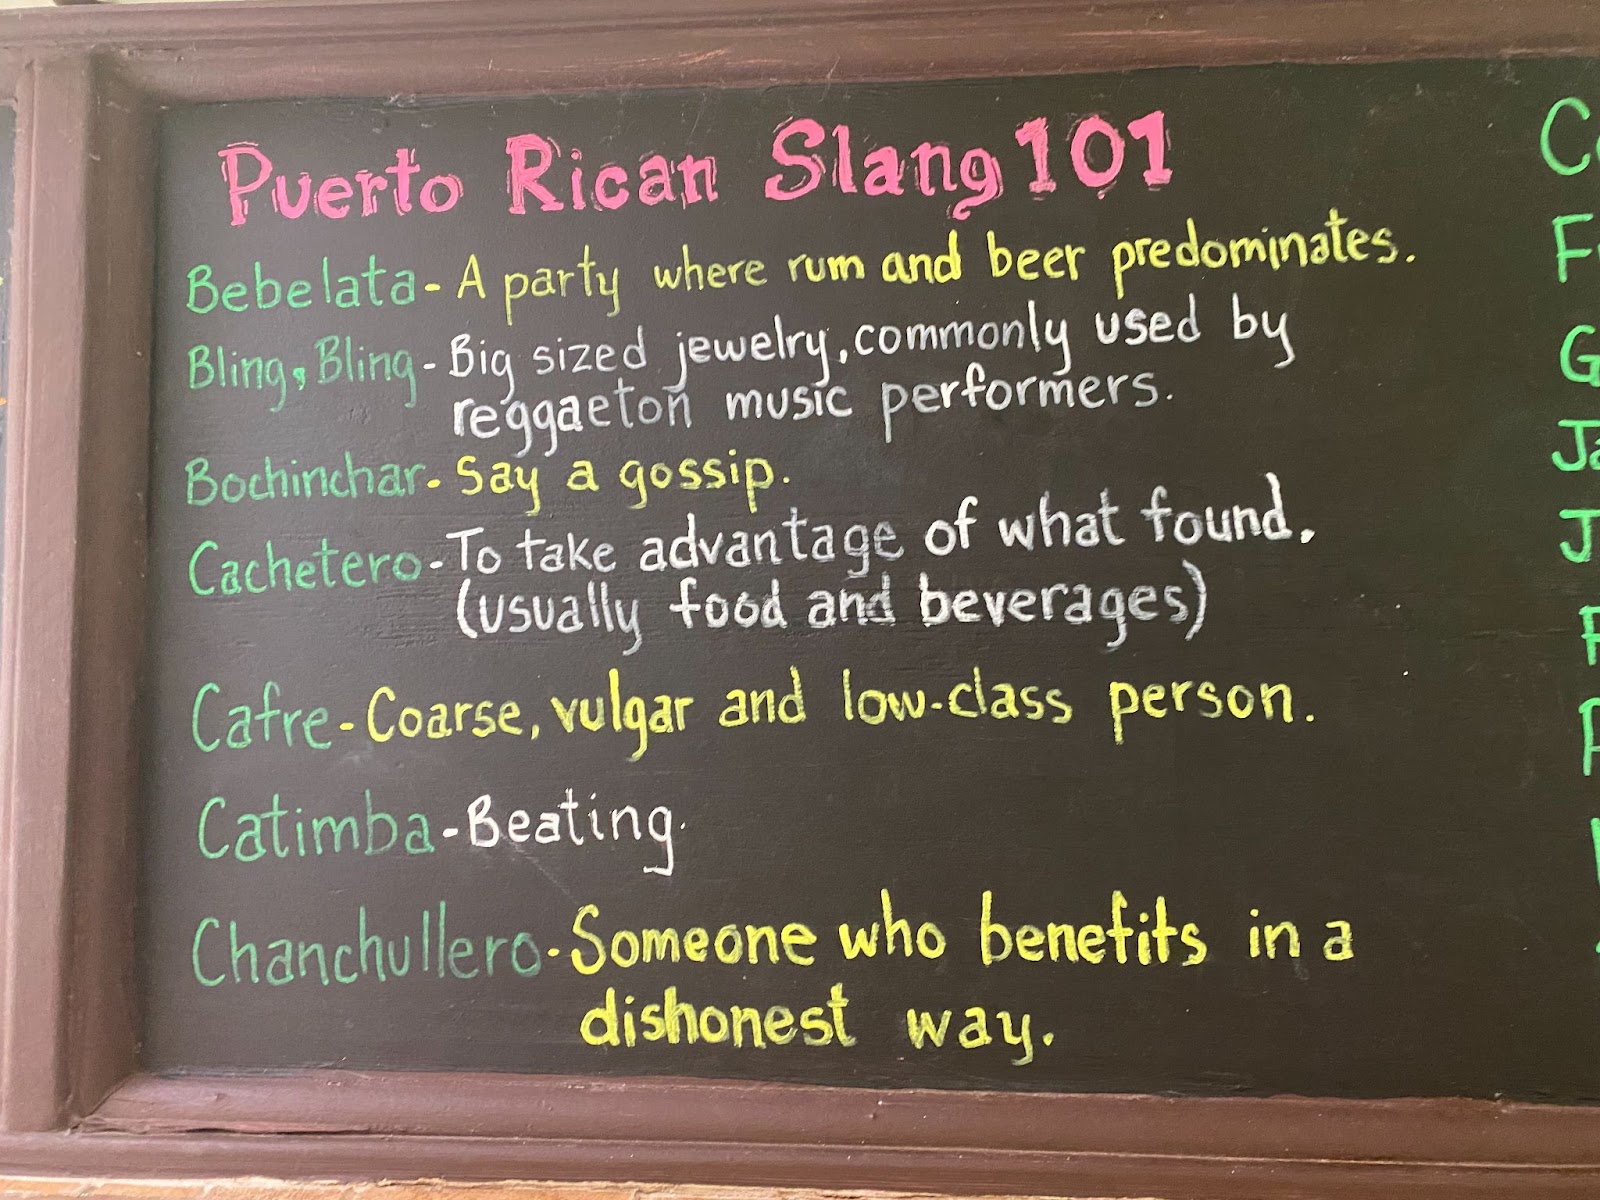 Puerto Rican Slang 101
Bebelata - A party where rum and beer predominates.
Bling, Bling - Big sized jewelry, commonly used by
reggaeton music performers.
Bochinchar - Say a gossip.
Cachetero - To take advantage of what found.
(usually food and beverages)
Cafre - Coarse, vulgar and low-class person.
Catimba - Beating.
Chanchullero - Someone who benefits in a
dishonest way.